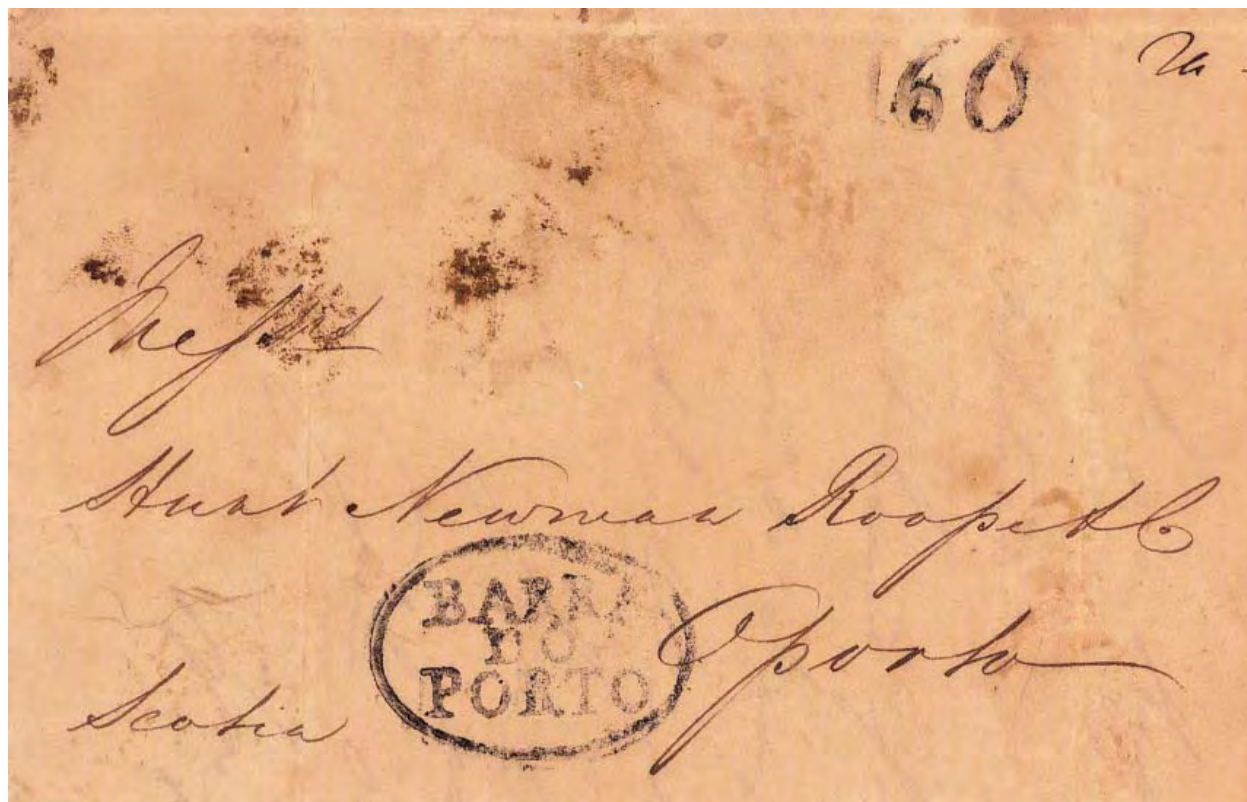 160
Messrs
Hunt Newman Roope & Co
BARRA
DO
PORTO
Oporto
Scotia